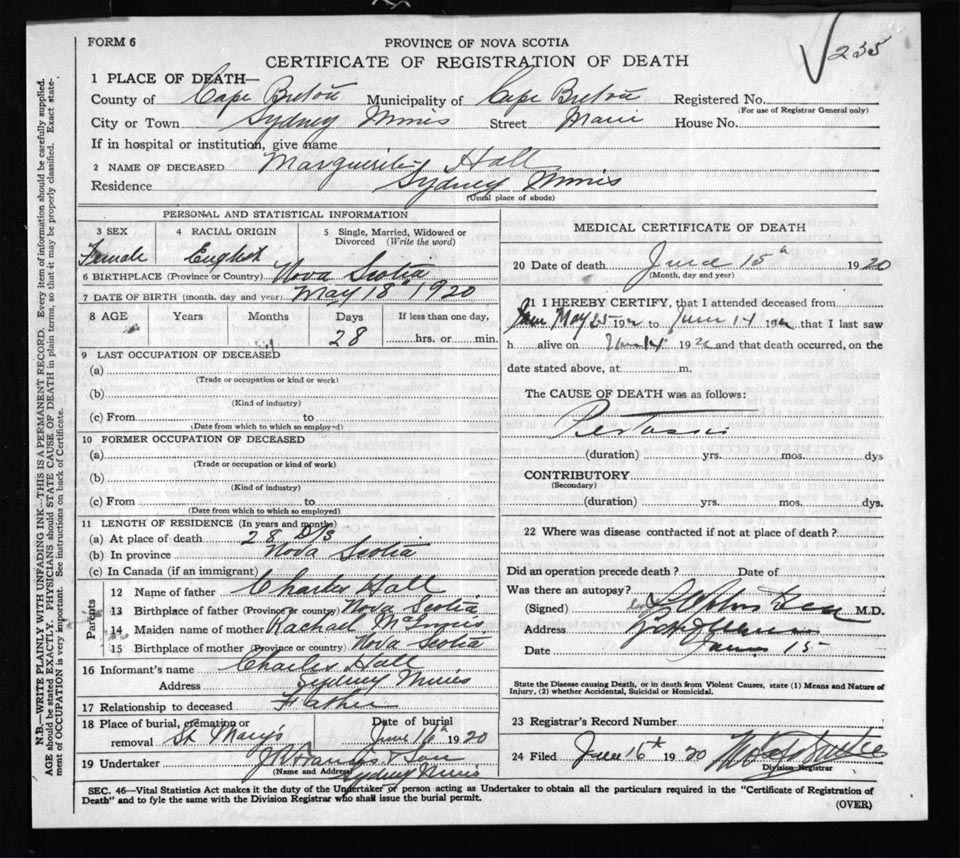 FORM 6
PROVINCE OF NOVA SCOTIA
235
CERTIFICATE OF REGISTRATION OF DEATH
1 PLACE OF DEATH—
County of Cape Breton Municipality of Cape Breton Registered No.
(For use of Registrar General only)
City or Town Sydney Mines Street Main House No.
If in hospital or institution, give name
2 NAME OF DECEASED Marguerite Hall
Residence Sydney Mines
(Usual place of abode)
PERSONAL AND STATISTICAL INFORMATION
3 SEX 4 RACIAL ORIGIN 5 Single, Married, Widowed or Divorced (Write the word)
Female English
6 BIRTHPLACE (Province or Country) Nova Scotia
7 DATE OF BIRTH (month, day and year) May 18th 1920
8 AGE Years Months Days If less than one day,
28 hrs. or min.
9 LAST OCCUPATION OF DECEASED
(a)
(Trade or occupation or kind or work)
(b)
(Kind of industry)
(c) From to
(Date from which to which so employed)
10 FORMER OCCUPATION OF DECEASED
(a)
(Trade or occupation or kind of work)
(b)
(Kind of industry)
(c) From to
(Date from which to which so employed)
11 LENGTH OF RESIDENCE (In years and months)
(a) At place of death 28 D/S
(b) In province Nova Scotia
(c) In Canada (if an immigrant)
Parents
12 Name of father Charles Hall
13 Birthplace of father (Province or country) Nova Scotia
14 Maiden name of mother Rachael McInnis
15 Birthplace of mother (Province or country) Nova Scotia
16 Informant's name Charles Hall
Address Sydney Mines
17 Relationship to deceased Father
18 Place of burial, cremation or removal St Mary's Date of burial June 16th 1920
19 Undertaker & Son
(Name and Address) Sydney Mines
MEDICAL CERTIFICATE OF DEATH
20 Date of death June 15th 1920
(Month, day and year)
21 I HEREBY CERTIFY, that I attended deceased from
May 25 192 to June 14 192 that I last saw
h alive on June 14 192 and that death occurred, on the
date stated above, at m.
The CAUSE OF DEATH was as follows:
Pertussis
(duration) yrs. mos. dys
CONTRIBUTORY
(Secondary)
(duration) yrs. mos. dys.
22 Where was disease contracted if not at place of death?
Did an operation precede death? Date of
Was there an autopsy?
(Signed) M.D.
Address
Date June 15
State the Disease causing Death, or in death from Violent Causes, state (1) Means and Nature of
Injury, (2) whether Accidental, Suicidal or Homicidal.
23 Registrar's Record Number
24 Filed June 16th 1920
Division Registrar
SEC. 46—Vital Statistics Act makes it the duty of the Undertaker or person acting as Undertaker to obtain all the particulars required in the "Certificate of Registration of
Death" and to fyle the same with the Division Registrar who shall issue the burial permit.
(OVER)
N.B.—WRITE PLAINLY WITH UNFADING INK—THIS IS A PERMANENT RECORD. Every item of information should be carefully supplied.
AGE should be stated EXACTLY. PHYSICIANS should STATE CAUSE OF DEATH in plain terms, so that it may be properly classified. Exact state-
ment of OCCUPATION is very important. See instructions on back of Certificate.